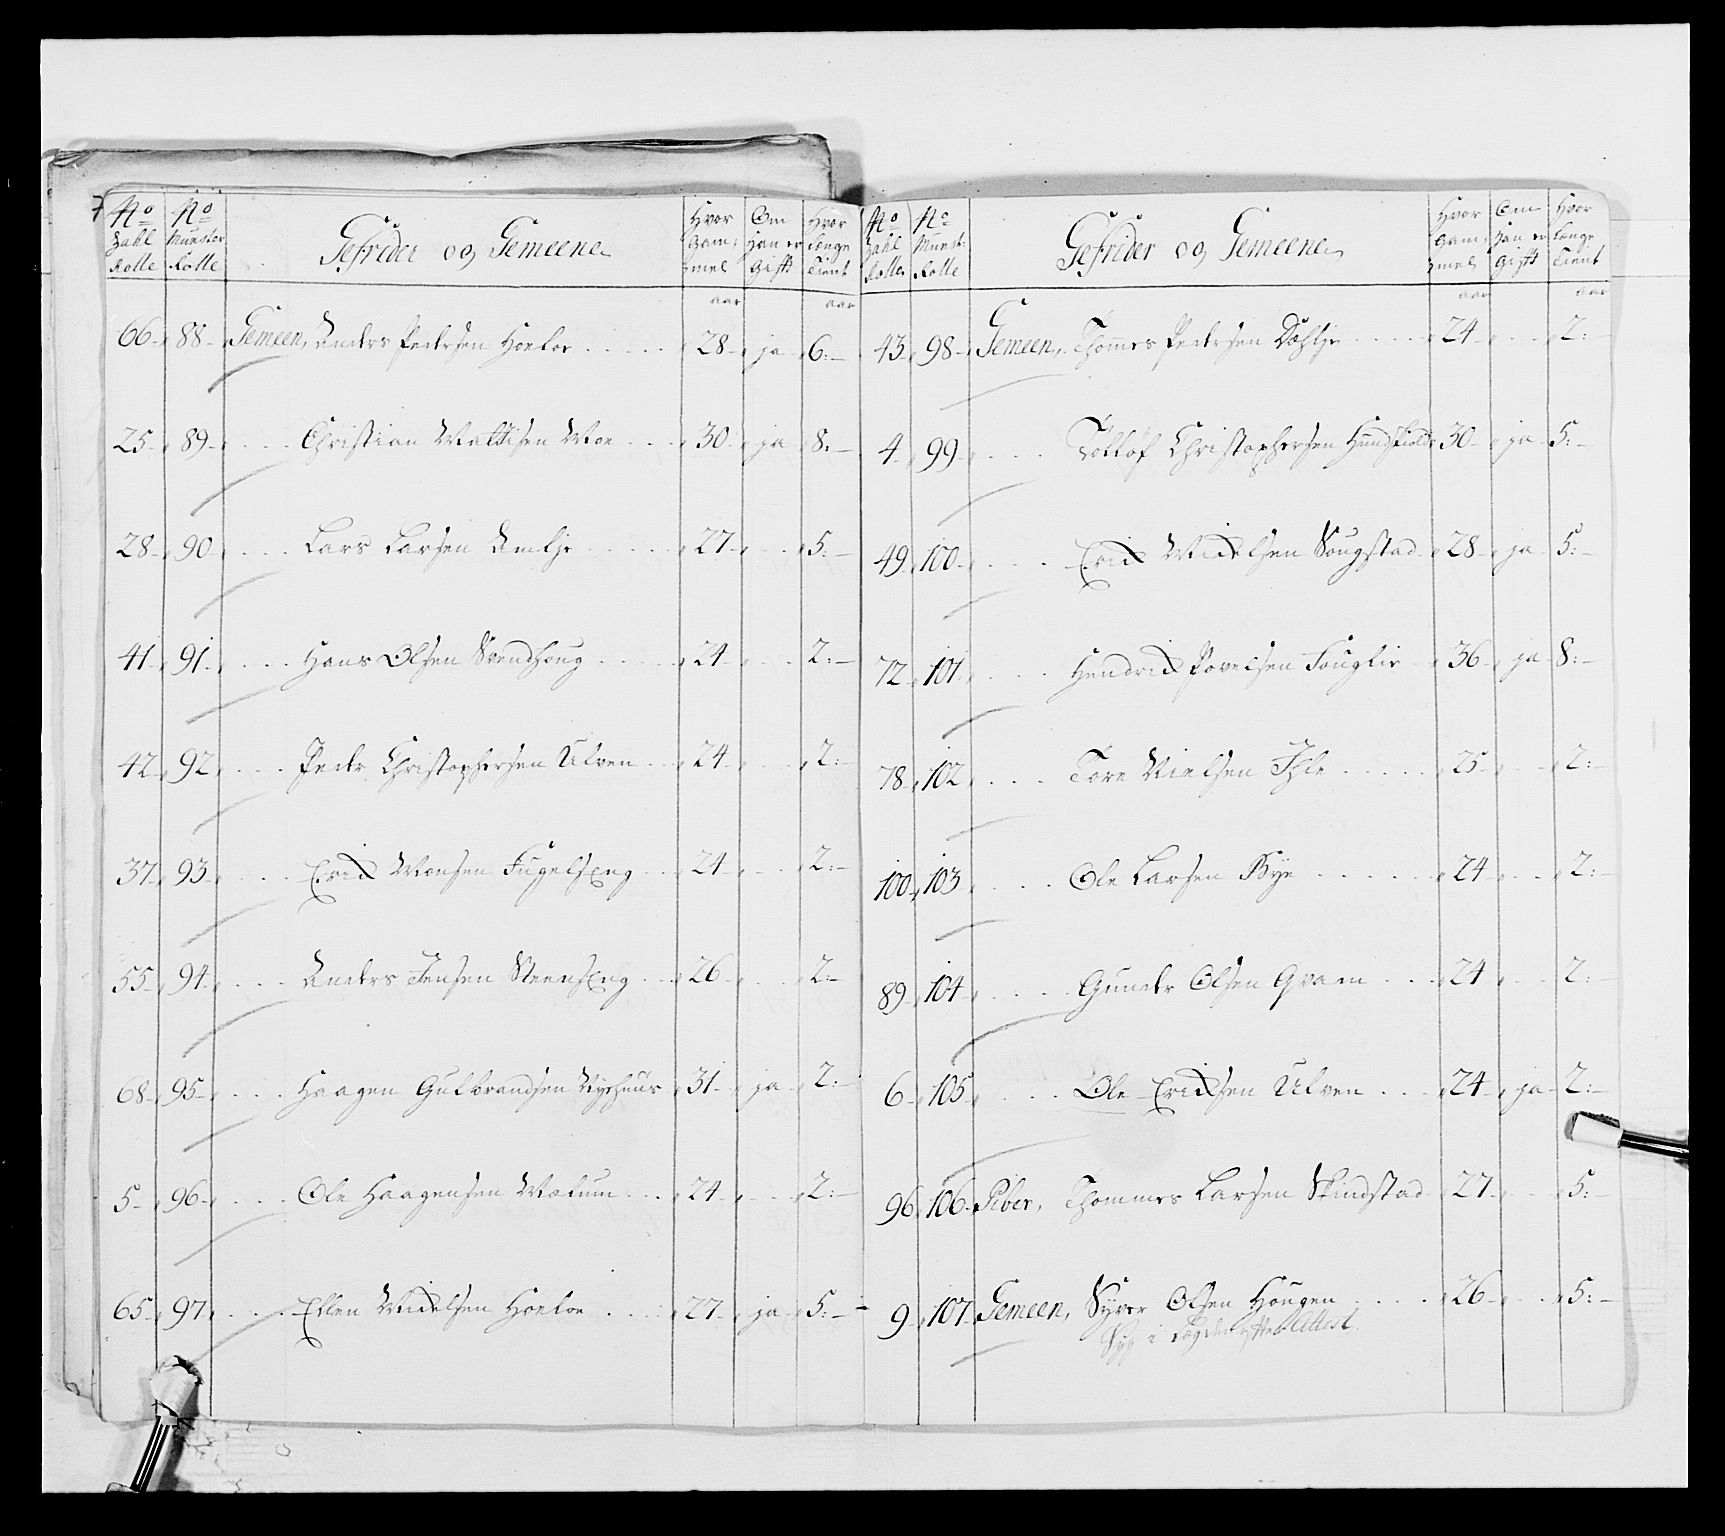 7
No Zahl Rolle | No Munster Rolle | Gefrider og Gemeene | Hvor Gam: mel | Om han er Gifft | Hvor Længe Tient
aar | aar
66 | 88 | Gemeen, Anders Pedersen Hoeloe | 28 | ja | 6:
25 | 89 | Christian Mattisen Moe | 30 | ja | 8:
28 | 90 | Lars Larsen Amlje | 27 | 5:
41 | 91 | Hans Olsen Svendhoug | 24 | 2:
42 | 92 | Peder Christophersen Ulven | 24 | 2:
37 | 93 | Erich Monsen Fugelseng | 24 | 2:
55 | 94 | Anders Jensen Steenseng | 26 | 2:
68 | 95 | Haagen Gulbrandsen Nyehuus | 31 | ja | 2:
5 | 96 | Ole Haagensen Moelum | 24 | 2:
65 | 97 | Ellen Michelsen Hoeloe | 27 | ja | 5:
No Zahl Rolle | No Munst: Rolle | Gefrider og Gemeene | Hvor Gam: mel | Om han er Gifft | Hvor Længe Tient
aar | aar
43 | 98 | Gemeen, Thommes Pedersen Dæhlje | 24 | 2:
4 | 99 | Tolløf Christophersen Hundskiold | 30 | ja | 5:
49 | 100 | Erich Michelsen Sougstad | 28 | ja | 5:
72 | 101 | Hendrich Povelsen Fouglie | 36 | ja | 8:
78 | 102 | Tore Nielsen Ihle | 25 | 2:
100 | 103 | Ole Larsen Bye | 24 | 2:
89 | 104 | Gunder Olsen Qvam | 24 | 2:
6 | 105 | Ole Erichsen Ulven | 24 | ja | 2:
96 | 106 | Piber, Thommes Larsen Skindstad | 27 | 5:
9 | 107 | Gemeen, Syver Olsen Hougen | 26 | 5:
Syg i Lægdet efter Attest